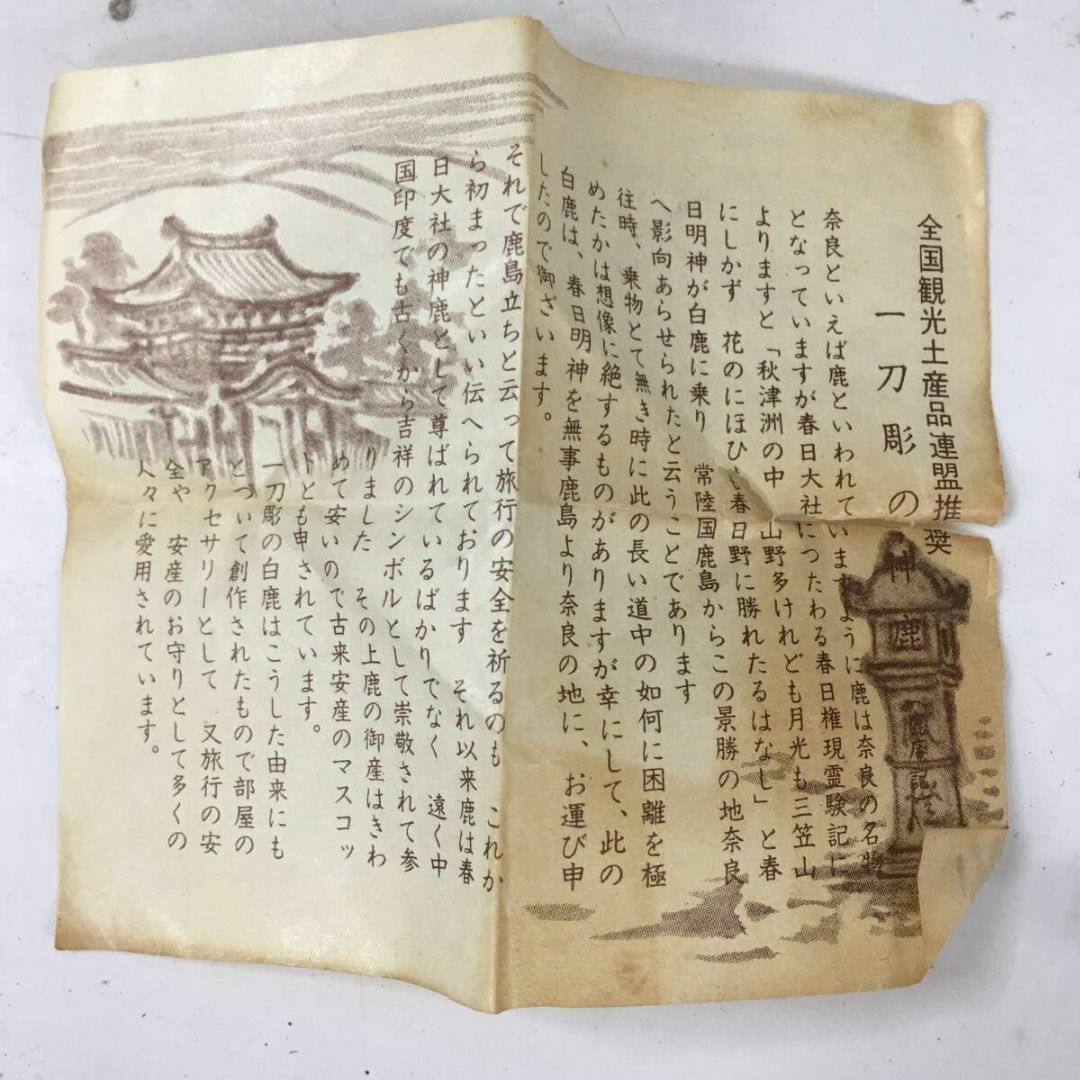 全国観光土産品連盟推奨
一刀彫の神鹿
奈良といえば鹿といわれていますように鹿は奈良の名物
となっていますが春日大社につたわる春日権現霊験記に
よりますと「秋津洲の中 山野多けれども月光も三笠山
にしかず 花のにほひも春日野に勝れたるはなし」と春
日明神が白鹿に乗り 常陸国鹿島からこの景勝の地奈良
へ影向あらせられたと云うことであります
往時、乗物とて無き時に此の長い道中の如何に困離を極
めたかは想像に絶するものがありますが幸にして、此の
白鹿は、春日明神を無事鹿島より奈良の地に、お運び申
したので御ざいます。
それで鹿島立ちと云って旅行の安全を祈るのも これか
ら初まったといい伝へられております それ以来鹿は春
日大社の神鹿として尊ばれているばかりでなく 遠く中
国印度でも古くから吉祥のシンボルとして崇敬されて参
りました その上鹿の御産はきわ
めて安いので古来安産のマスコッ
トとも申されています。
一刀彫の白鹿はこうした由来にも
とづいて創作されたもので部屋の
アクセサリーとして 又旅行の安
全や 安産のお守りとして多くの
人々に愛用されています。